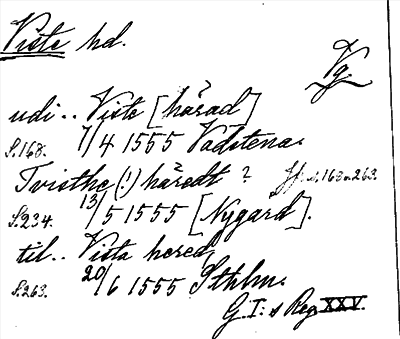 Viste hd.
Vg
udi .. Viste [härad]
S.168. 7/4 1555 Vadstena.
Tvisthe (!) häredt ? Jf. s. 168 o. 263.
S.234. 13/5 1555 [Nygård].
til .. Vista hered
S.263. 20/6 1555 Sthlm.
G. I:s Reg. XXV.